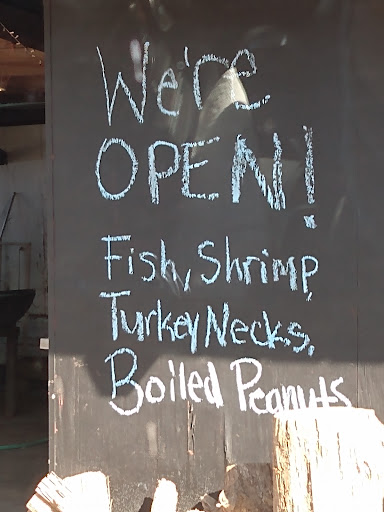 We're
OPEN!
Fish, Shrimp,
Turkey Necks,
Boiled Peanuts